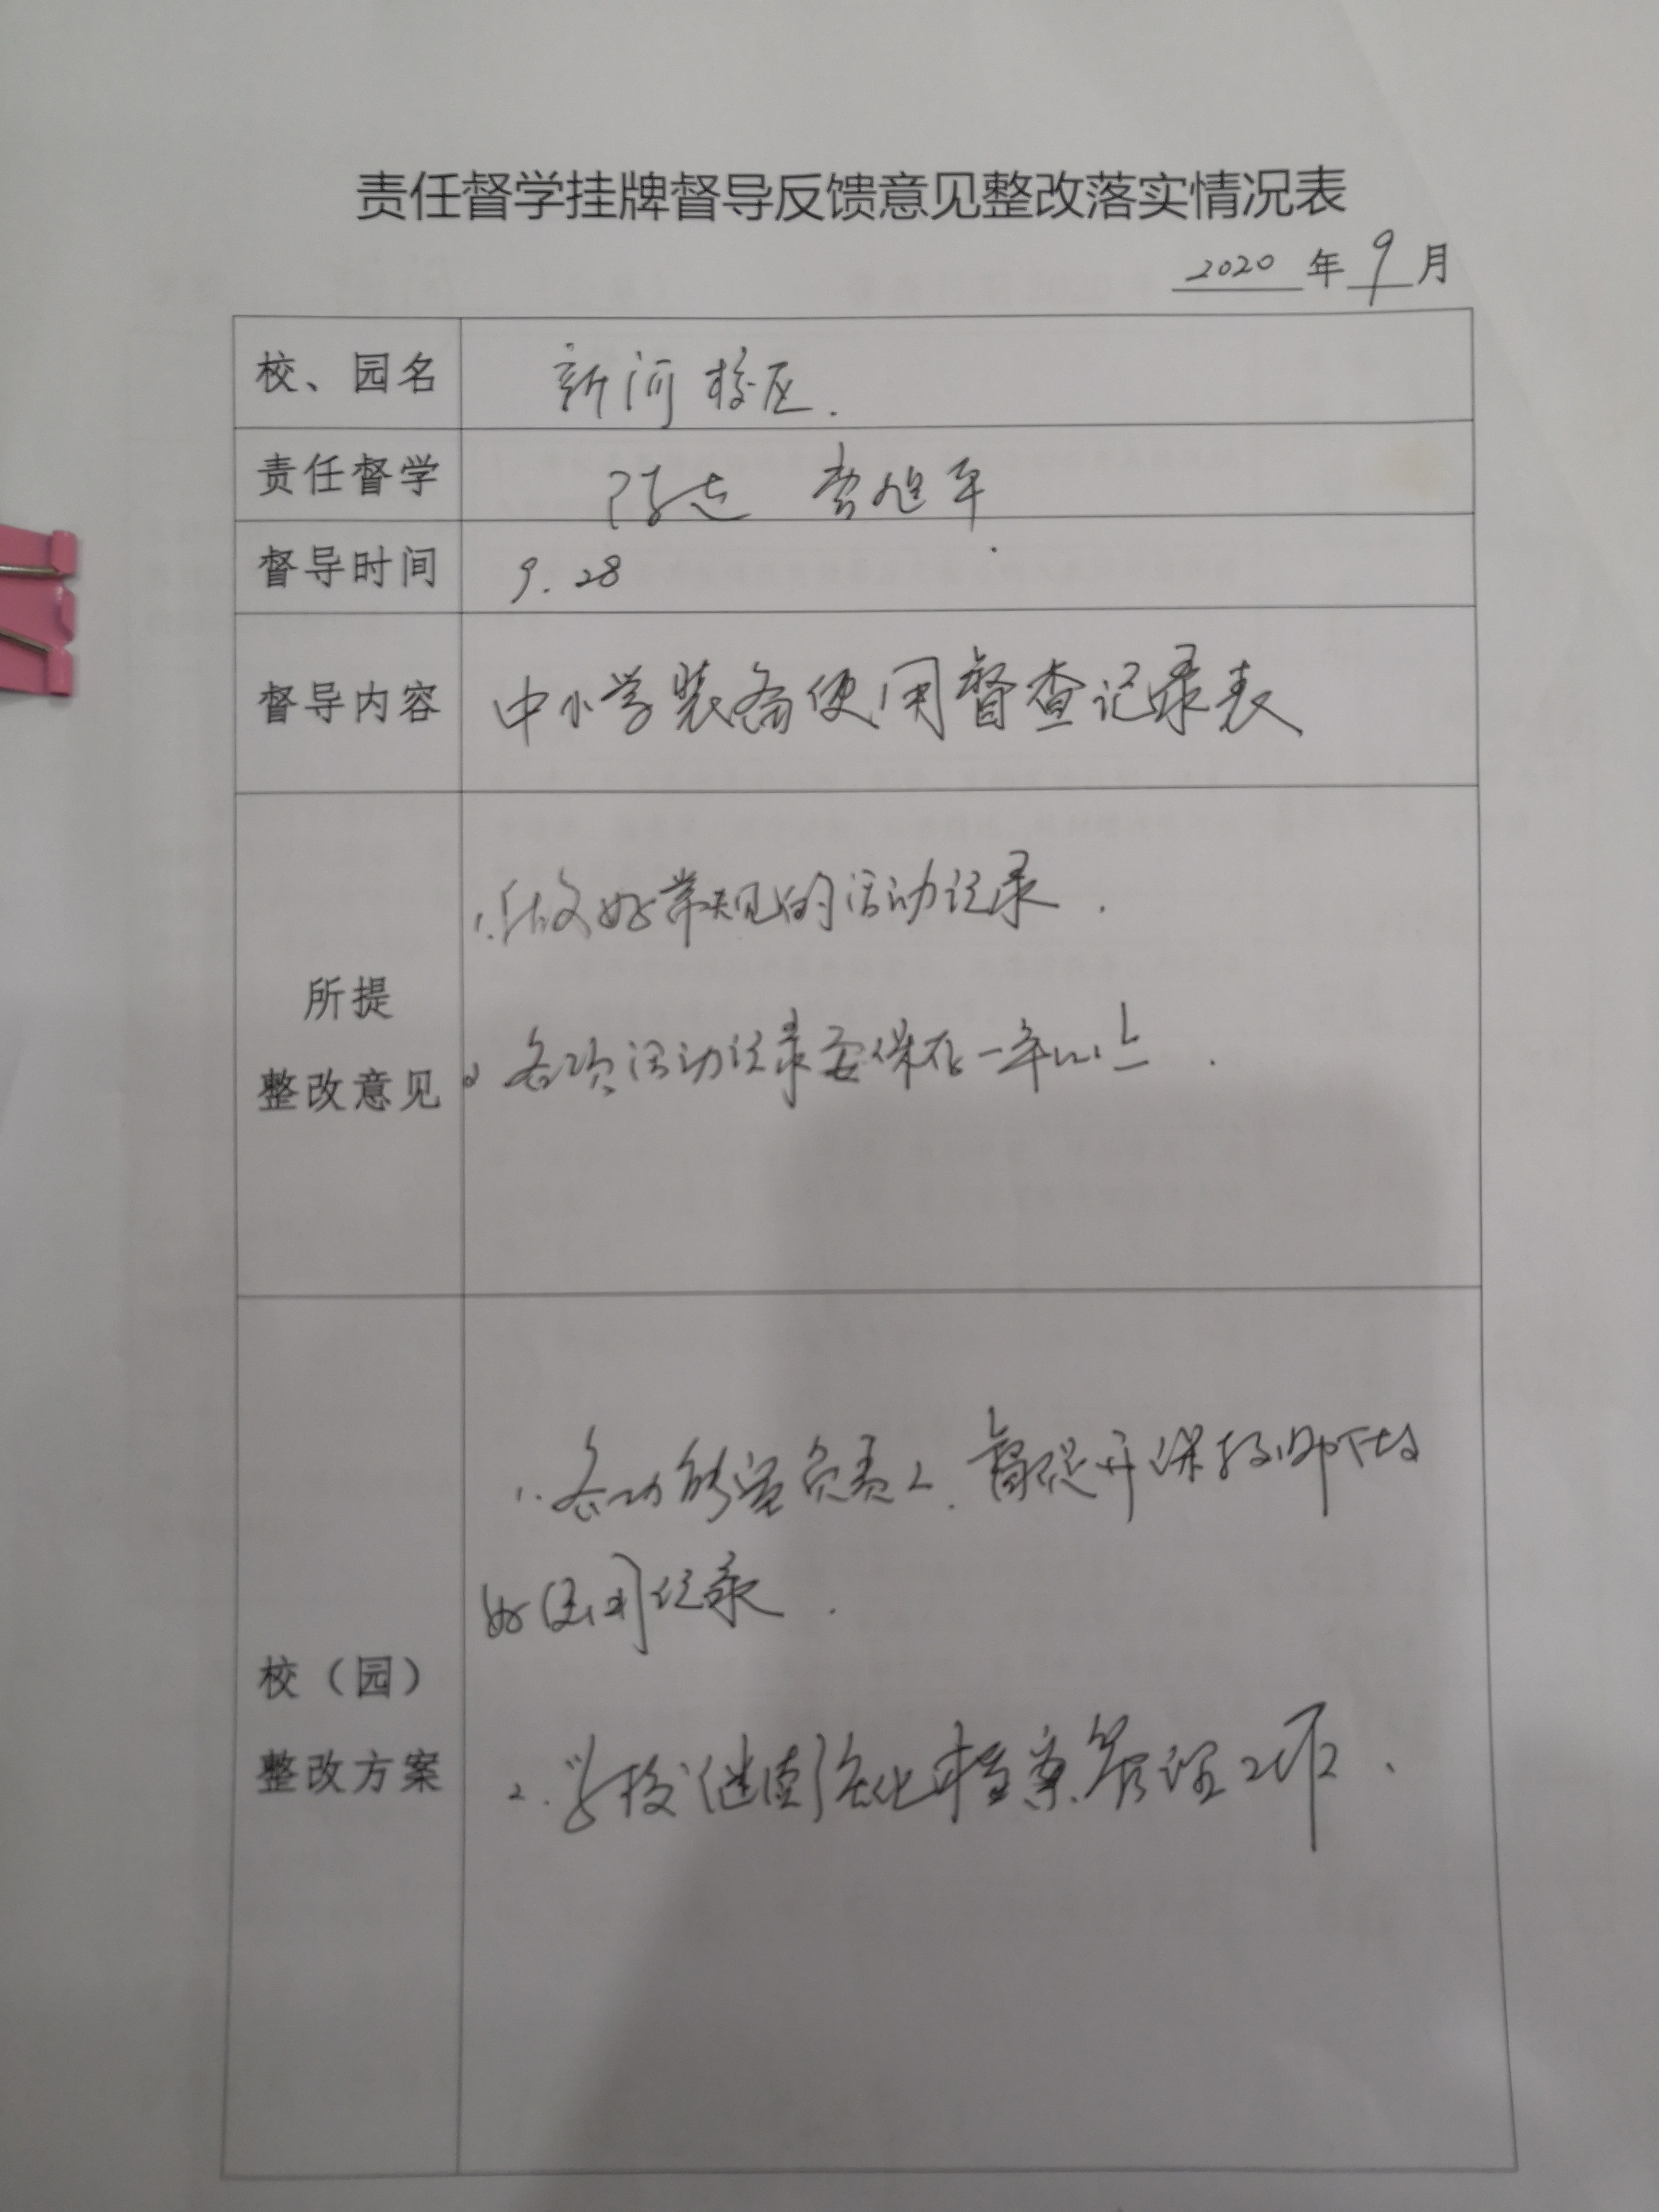 责任督学挂牌督导反馈意见整改落实情况表
2020年9月
校、园名 新河校区.
责任督学 陈 旭平
督导时间 9.28
督导内容 中小学装备使用督查记录表
所提
整改意见
1.做好常规的活动记录.
2 各项活动记录要保存一年以上.
校(园)
整改方案
1.各功能室负责人.督促开课教师
好使用记录.
2.学校继续强化档案管理工作、